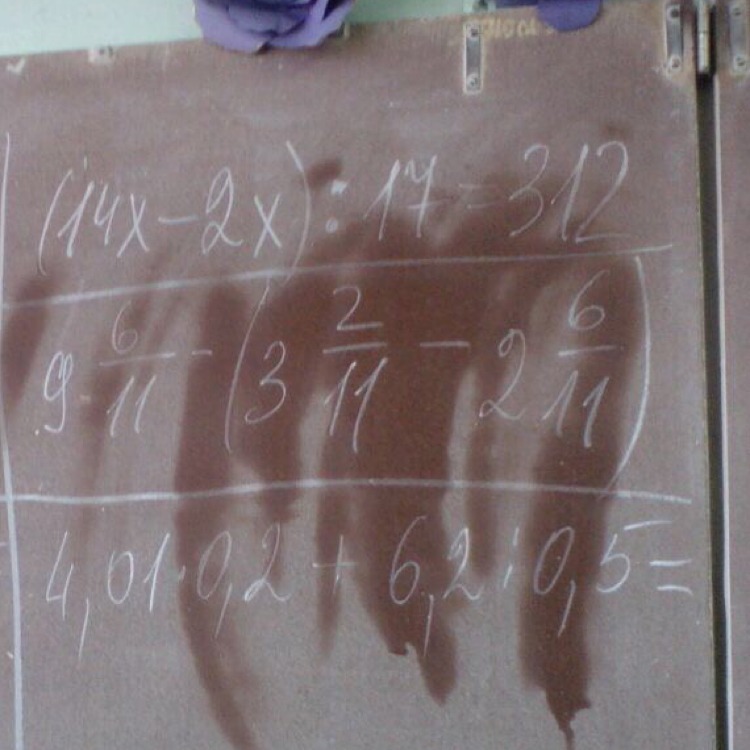 (14x-2x):17=312
9 6/11 - (3 2/11 - 2 6/11)
4,01·0,2+6,2:0,5=